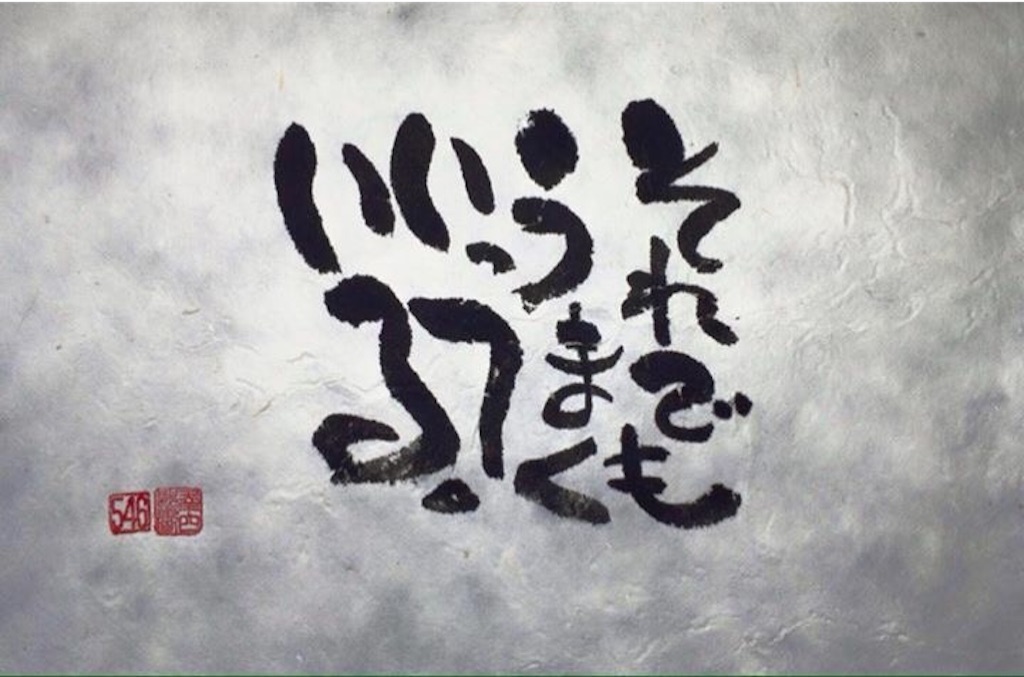 それでも
うまく
いって
いる
546